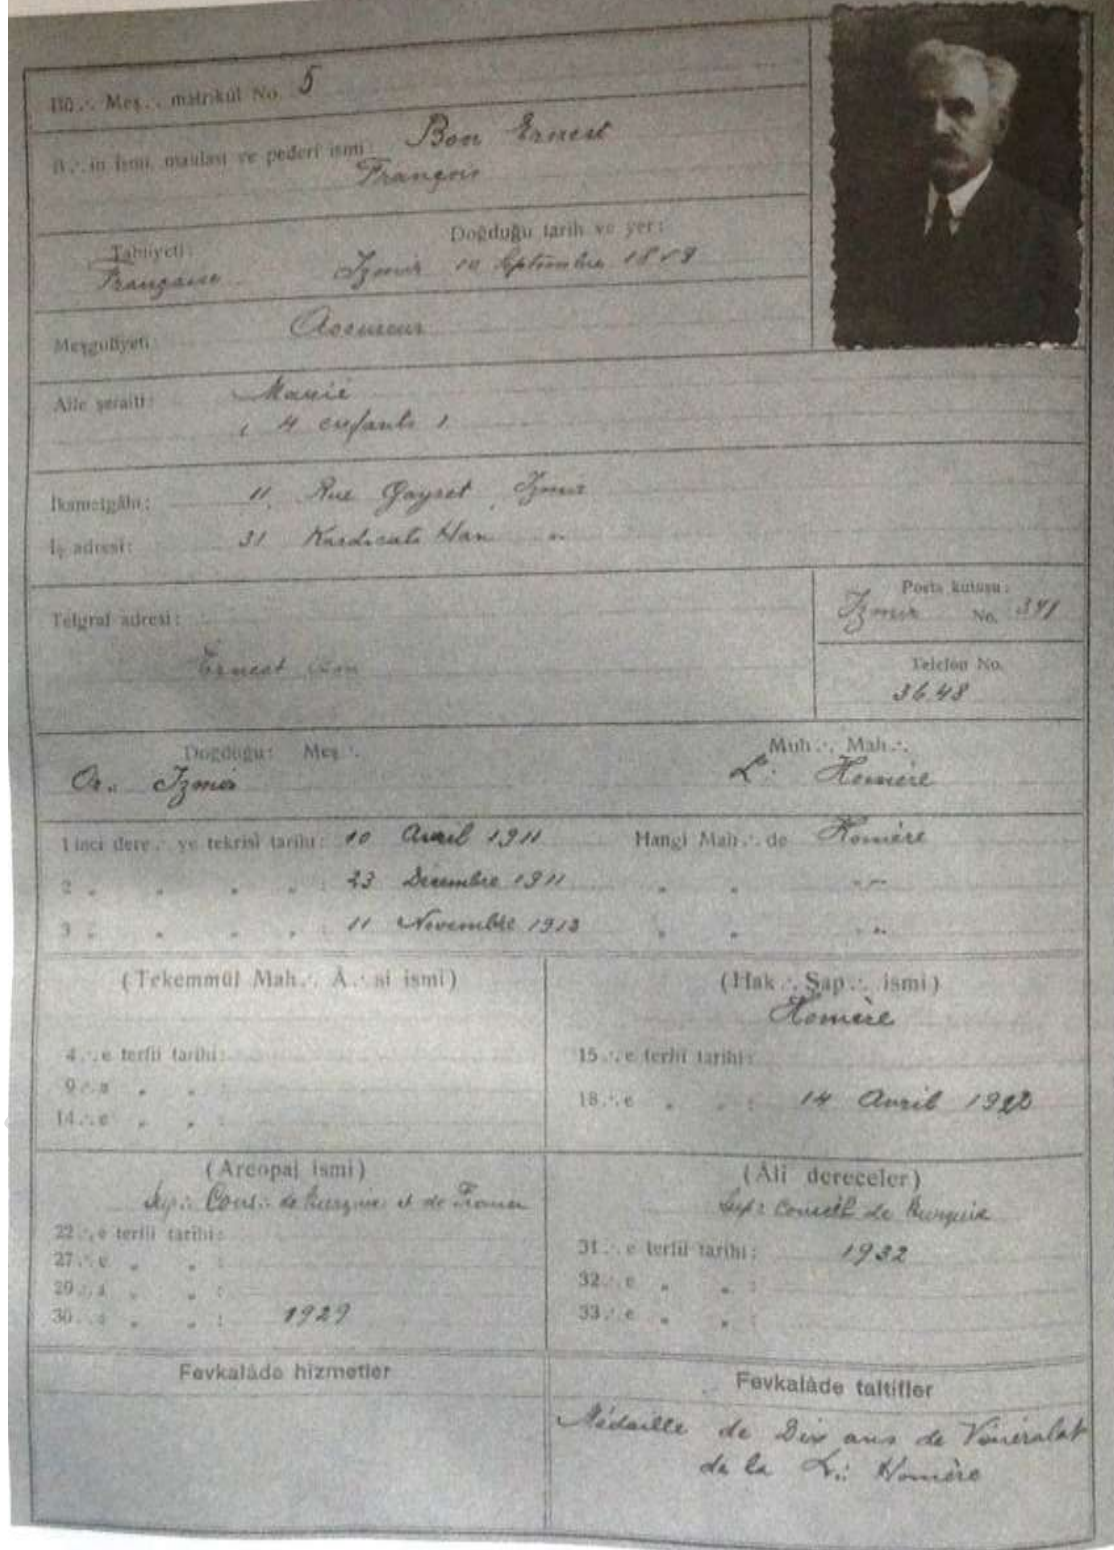 Bü∴ Meş∴ matrikül No. 5
B∴ in ismi, mahlası ve pederi ismi: Bon Ernest
François
Tabiiyeti: Doğduğu tarih ve yer:
Française Izmir 10 Septembre
Meşguliyeti: Assureur
Aile şeraiti: Marié
4 enfants
İkametgâhı: 11, Rue Gayret, Izmir
İş adresi: 31 Kardicali Han "
Telgraf adresi:
Ernest Bon
Posta kutusu:
Izmir No. 341
Telefon No.
36.48
Doğduğu: Meş∴ Muh∴ Mah∴
Or∴ Izmir L∴ Homère
1 inci dere∴ ye tekrisi tarihi: 10 Avril 1911 Hangi Mah∴ de Homère
2 " " " " : 23 Décembre 1911 " " "
3 " " " " : 11 Novembre 1913 " " "
(Tekemmül Mah∴ Â∴ si ismi)
4∴e terfii tarihi:
9∴a " " :
14∴e " " :
(Hak∴ Şap∴ ismi)
Homère
15∴e terfii tarihi:
18∴e " " : 14 Avril
(Areopaj ismi)
Sup∴ Cons∴ de Turquie et de France
22∴e terfii tarihi:
27∴e " " :
29∴a " " :
30∴a " " : 1929
(Âli dereceler)
Sup∴ Conseil de Turquie
31∴e terfii tarihi: 1932
32∴e " " :
33∴e " " :
Fevkalâde hizmetler
Fevkalâde taltifler
Médaille de Dix ans de Vénéralat
de la L∴ Homère